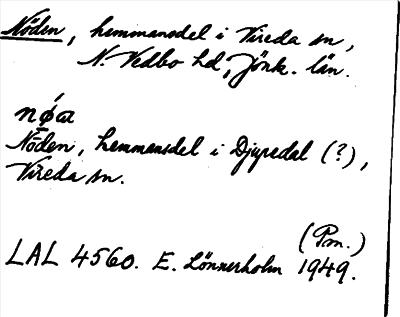 Nöden, hemmansdel i Vireda sn,
N. Vedbo hd, Jönk. län.
Nöden, hemmansdel i Djupedal (?),
Vireda sn.
(Pm.)
LAL 4560. E. Lönnerholm 1949.